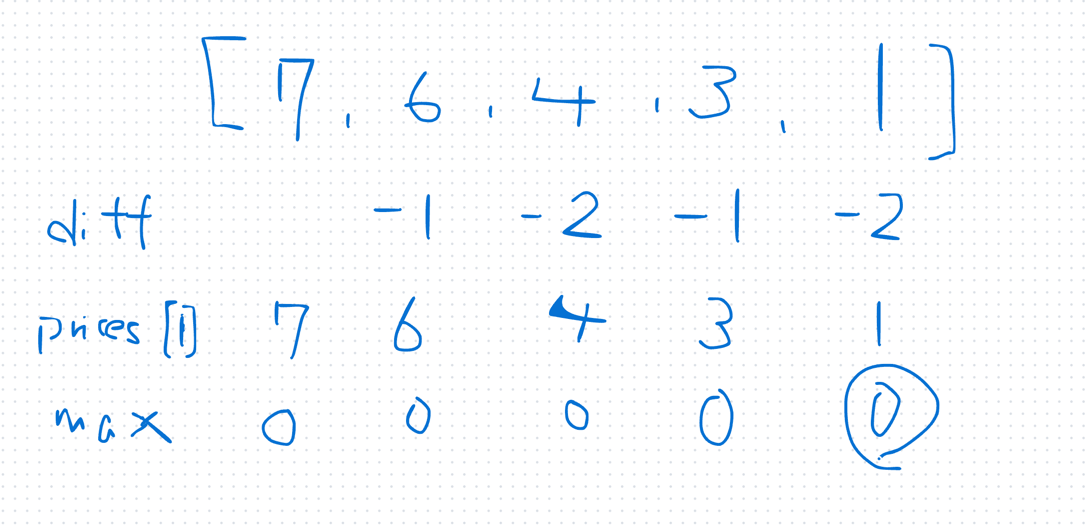 [7, 6, 4, 3, 1]
diff -1 -2 -1 -2
prices [i] 7 6 4 3 1
max 0 0 0 0 0